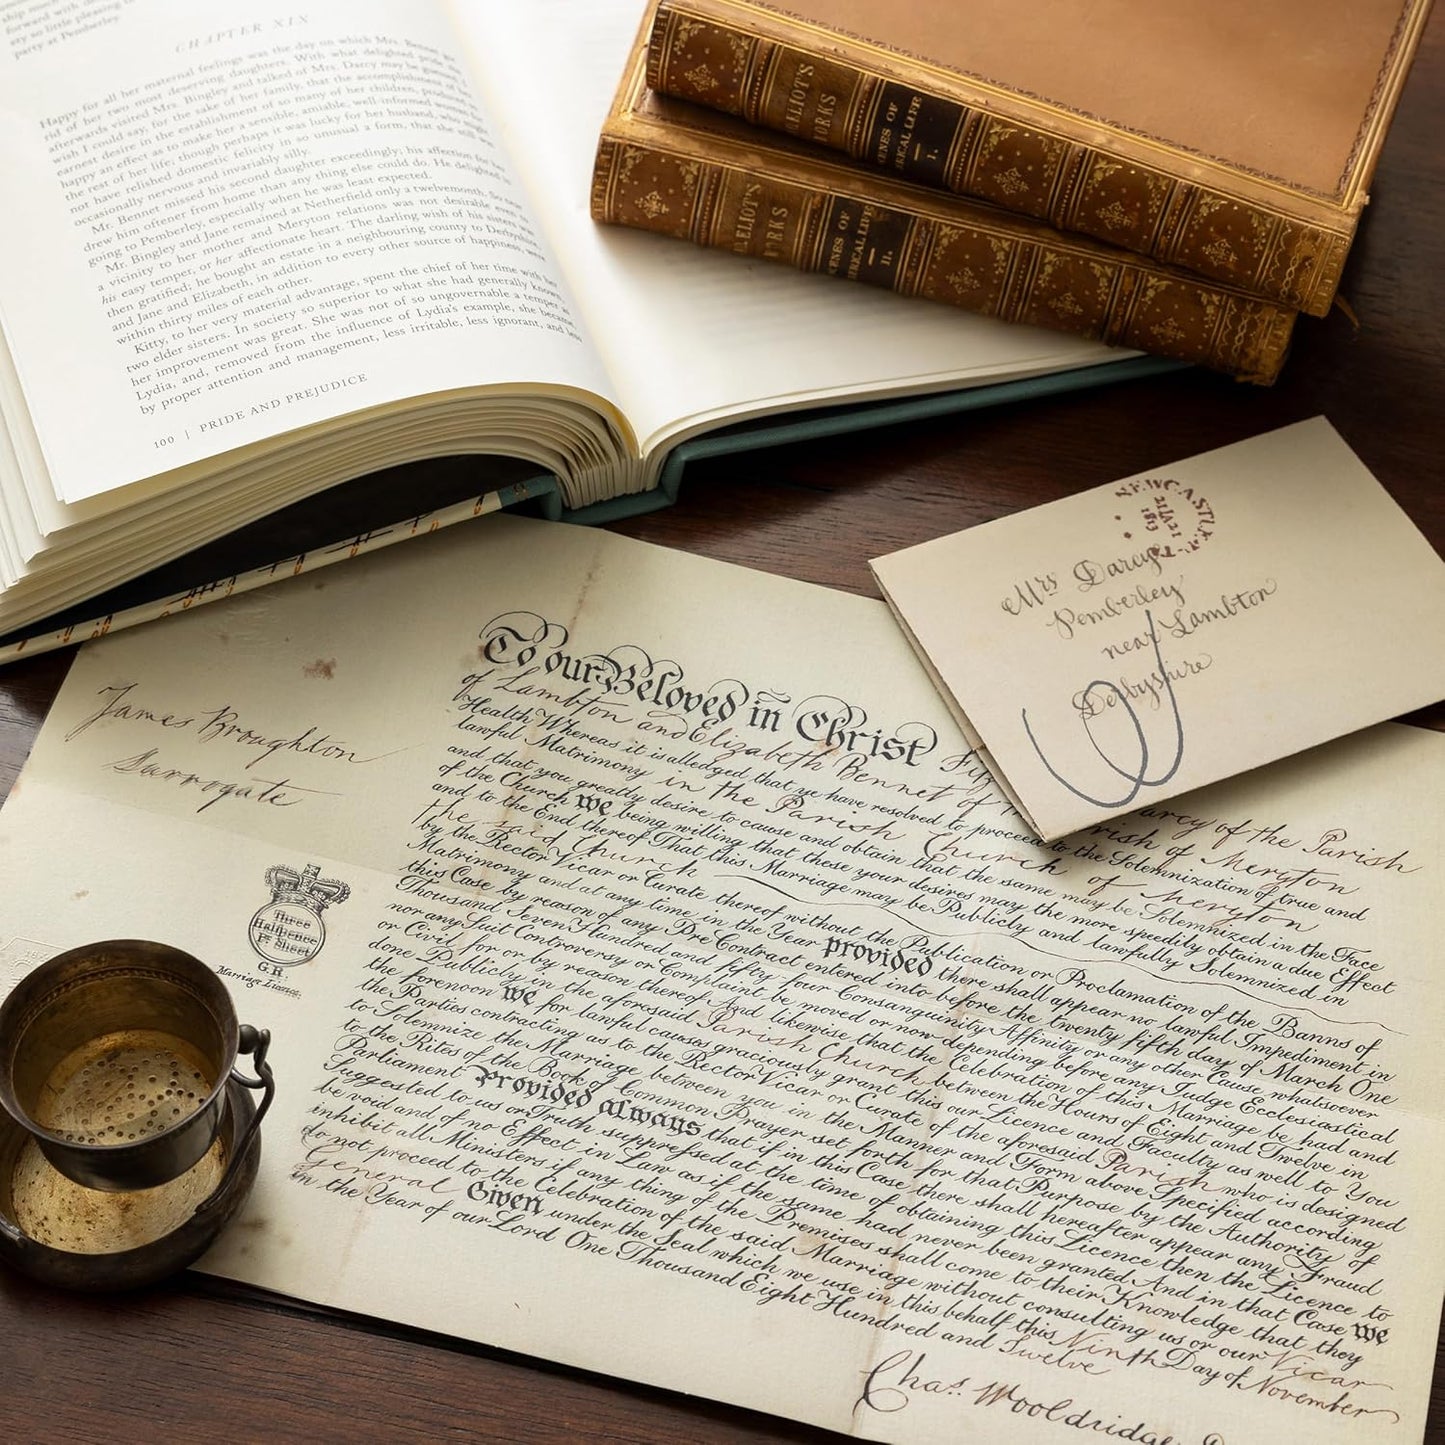 ship much
forward with
ety so little pleasing
party at Pemberley.
CHAPTER XIX
Happy for all her maternal feelings was the day on which Mrs. Bennet
rid of her two most deserving daughters. With what delighted pride she
afterwards visited Mrs. Bingley and talked of Mrs. Darcy may be guessed.
wish I could say, for the sake of her family, that the accomplishment of
earnest desire in the establishment of so many of her children, produced so
happy an effect as to make her a sensible, amiable, well-informed woman for
the rest of her life; though perhaps it was lucky for her husband, who might
not have relished domestic felicity in so unusual a form, that she still was
occasionally nervous and invariably silly.
Mr. Bennet missed his second daughter exceedingly; his affection for her
drew him oftener from home than any thing else could do. He delighted in
going to Pemberley, especially when he was least expected.
Mr. Bingley and Jane remained at Netherfield only a twelvemonth. So near
a vicinity to her mother and Meryton relations was not desirable even to
his easy temper, or her affectionate heart. The darling wish of his sisters was
then gratified; he bought an estate in a neighbouring county to Derbyshire,
and Jane and Elizabeth, in addition to every other source of happiness, were
within thirty miles of each other.
Kitty, to her very material advantage, spent the chief of her time with her
two elder sisters. In society so superior to what she had generally known,
her improvement was great. She was not of so ungovernable a temper as
Lydia, and, removed from the influence of Lydia's example, she became,
by proper attention and management, less irritable, less ignorant, and less
100 | PRIDE AND PREJUDICE
ELIOT'S
WORKS
SCENES OF
CLERICAL LIFE
I.
ELIOT'S
WORKS
SCENES OF
CLERICAL LIFE
II.
NEWCASTLE
21 JA 21
1813
Mrs Darcy
Pemberley
near Lambton
Derbyshire
James Broughton
Surrogate
Three
Halfpence
Pr Sheet
G.R.
Marriage Licence.
To our Beloved in Christ Darcy of the Parish
of Lambton and Elizabeth Bennet of the Parish of Meryton
Health Whereas it is alledged that ye have resolved to proceed to the Solemnization of true and
lawful Matrimony in the Parish Church of Meryton
and that you greatly desire to cause and obtain that the same may be Solemnized in the Face
of the Church We being willing that these your desires may the more speedily obtain a due Effect
and to the End thereof That this Marriage may be Publicly and lawfully Solemnized in
the said Church
by the Rector Vicar or Curate thereof without the Publication or Proclamation of the Banns of
Matrimony and at any time in the Year Provided there shall appear no lawful Impediment in
this Case by reason of any Pre Contract entered into before the twenty fifth day of March One
Thousand Seven Hundred and fifty-four Consanguinity Affinity or any other Cause whatsoever
nor any Suit Controversy or Complaint be moved or now depending before any Judge Ecclesiastical
or Civil for or by reason thereof And likewise that the Celebration of this Marriage be had and
done Publicly in the aforesaid Parish Church between the Hours of Eight and Twelve in
the forenoon We for lawful causes graciously grant this our Licence and Faculty as well to You
the Parties contracting as to the Rector Vicar or Curate of the aforesaid Parish who is designed
to Solemnize the Marriage between you in the Manner and Form above Specified according
to the Rites of the Book of Common Prayer set forth for that Purpose by the Authority of
Parliament Provided always that if in this Case there shall hereafter appear any Fraud
Suggested to us or Truth suppressed at the time of obtaining this Licence then the Licence to
be void and of no Effect in Law as if the same had never been granted And in that Case We
inhibit all Ministers if any thing of the Premises shall come to their Knowledge that they
do not proceed to the Celebration of the said Marriage without consulting us or our Vicar
General Given under the Seal which we use in this behalf this Ninth Day of November
in the Year of our Lord One Thousand Eight Hundred and Twelve
Chas. Wooldridge